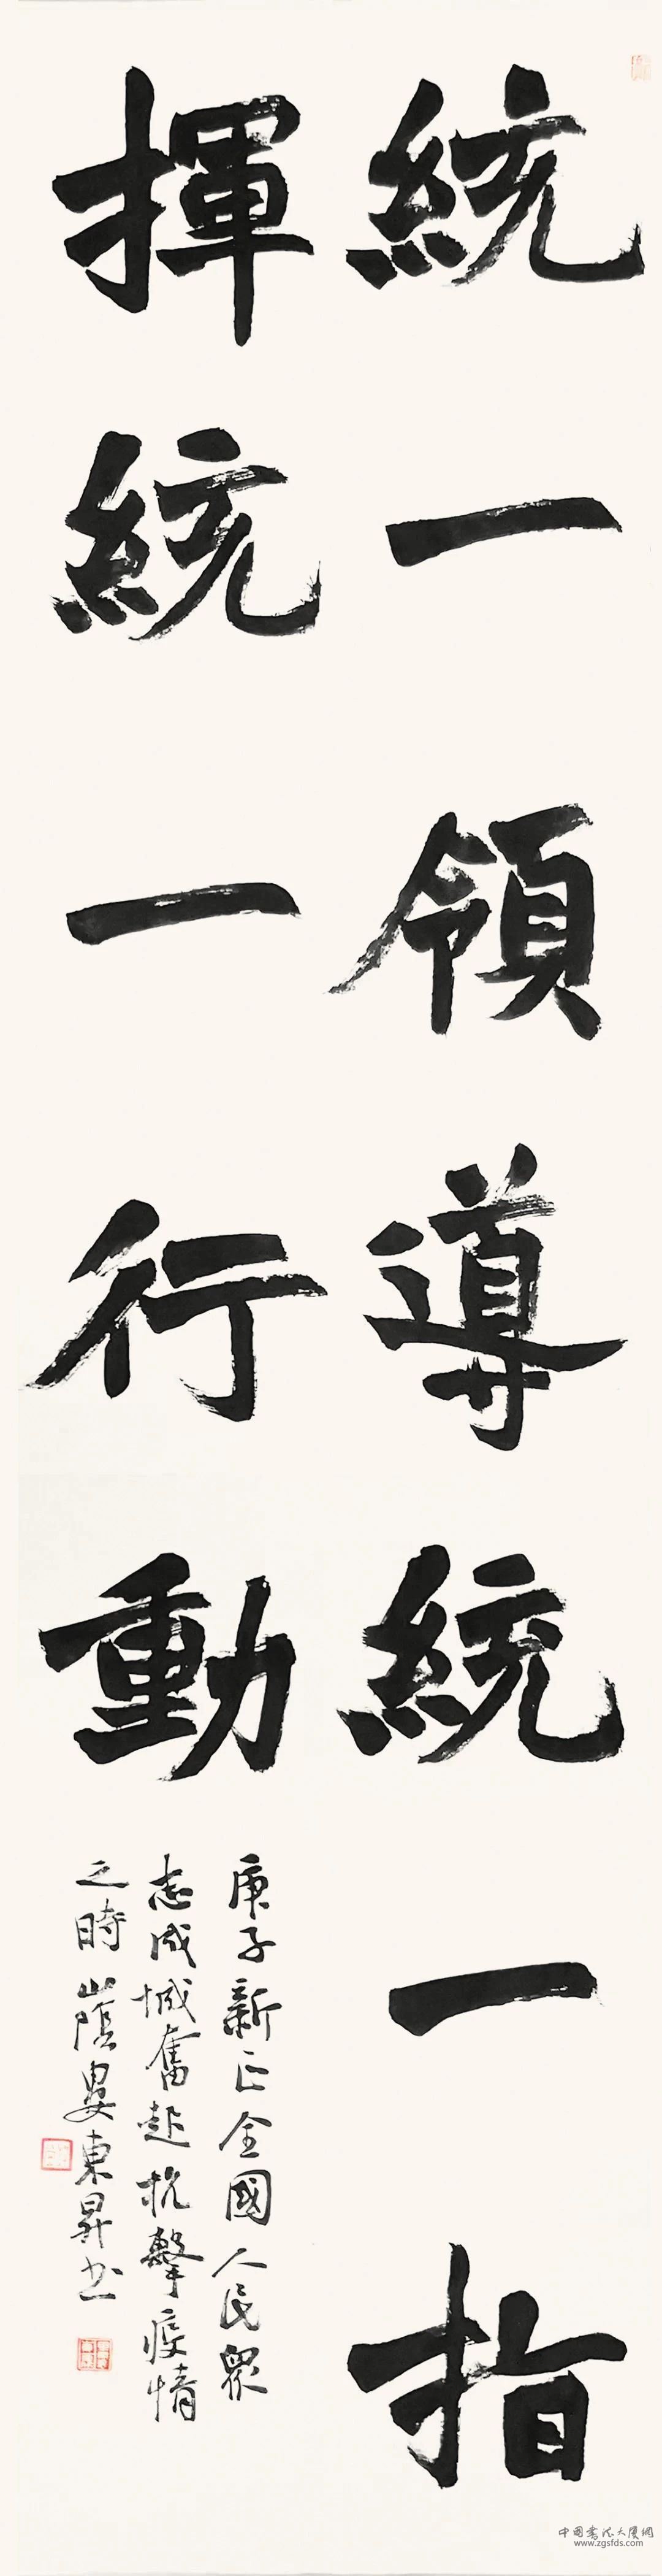 統一領導統一指
揮統一行動
庚子新正全國人民眾
志成城奮起抗擊疫情
之時山陰婁東昇书
中国书法大厦網
www.zgsfds.com